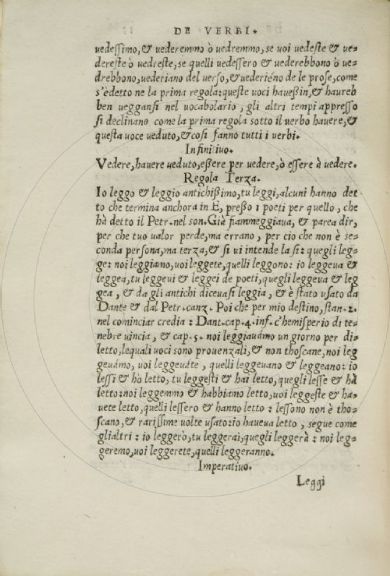 DE VERBI.
uedessimo, & uederemmo ò uedremmo, se uoi uedeste & ue-
dereste ò uedreste, se quelli uedessero & uederebbono ò ue-
drebbono, uederiano del uerso, & uederieno de le prose, come
s'è detto ne la prima regola: queste uoci haueßin, & haureb
ben ueggansi nel uocabolario, gli altri tempi appresso
si declinano come la prima regola sotto il uerbo hauere, &
questa uoce ueduto, & cosi fanno tutti i uerbi.
Infinitiuo.
Vedere, hauere ueduto, eßere per uedere, ò essere à uedere.
Regola Terza.
Io leggo & leggio antichißimo, tu leggi, alcuni hanno det
to che termina anchora in E, preßo i poeti per quello, che
hà detto il Petr. nel son. Già fiammeggiaua, & parea dir,
per che tuo ualor perde, ma errano, per cio che non è se-
conda persona, ma terza, & si ui intende la si: quegli leg-
ge: noi leggiamo, uoi leggete, quelli leggono: io leggeua &
leggea, tu leggeui & leggei de poeti, quegli leggeua & leg
gea, & da gli antichi diceuasi leggia, & è stato usato da
Dante & dal Petr. canz. Poi che per mio destino, stan. 2.
nel cominciar credia: Dant. cap. 4. inf. c'hemisperio di te-
nebre uincia, & cap. 5. noi leggiauamo un giorno per di-
letto, lequali uoci sono prouenzali, & non thoscane, noi leg
geuamo, uoi leggeuate, quelli leggeuano & leggeano: io
lessi & hò letto, tu leggesti & hai letto, quegli lesse & hà
letto: noi leggemmo & habbiamo letto, uoi leggeste & ha-
uete letto, quelli lessero & hanno letto: lessono non è tho-
scano, & rarissime uolte usato: io haueua letto, segue come
glialtri: io leggerò, tu leggerai, quegli leggerà: noi leg-
geremo, uoi leggerete, quelli leggeranno.
Imperatiuo.
Leggi